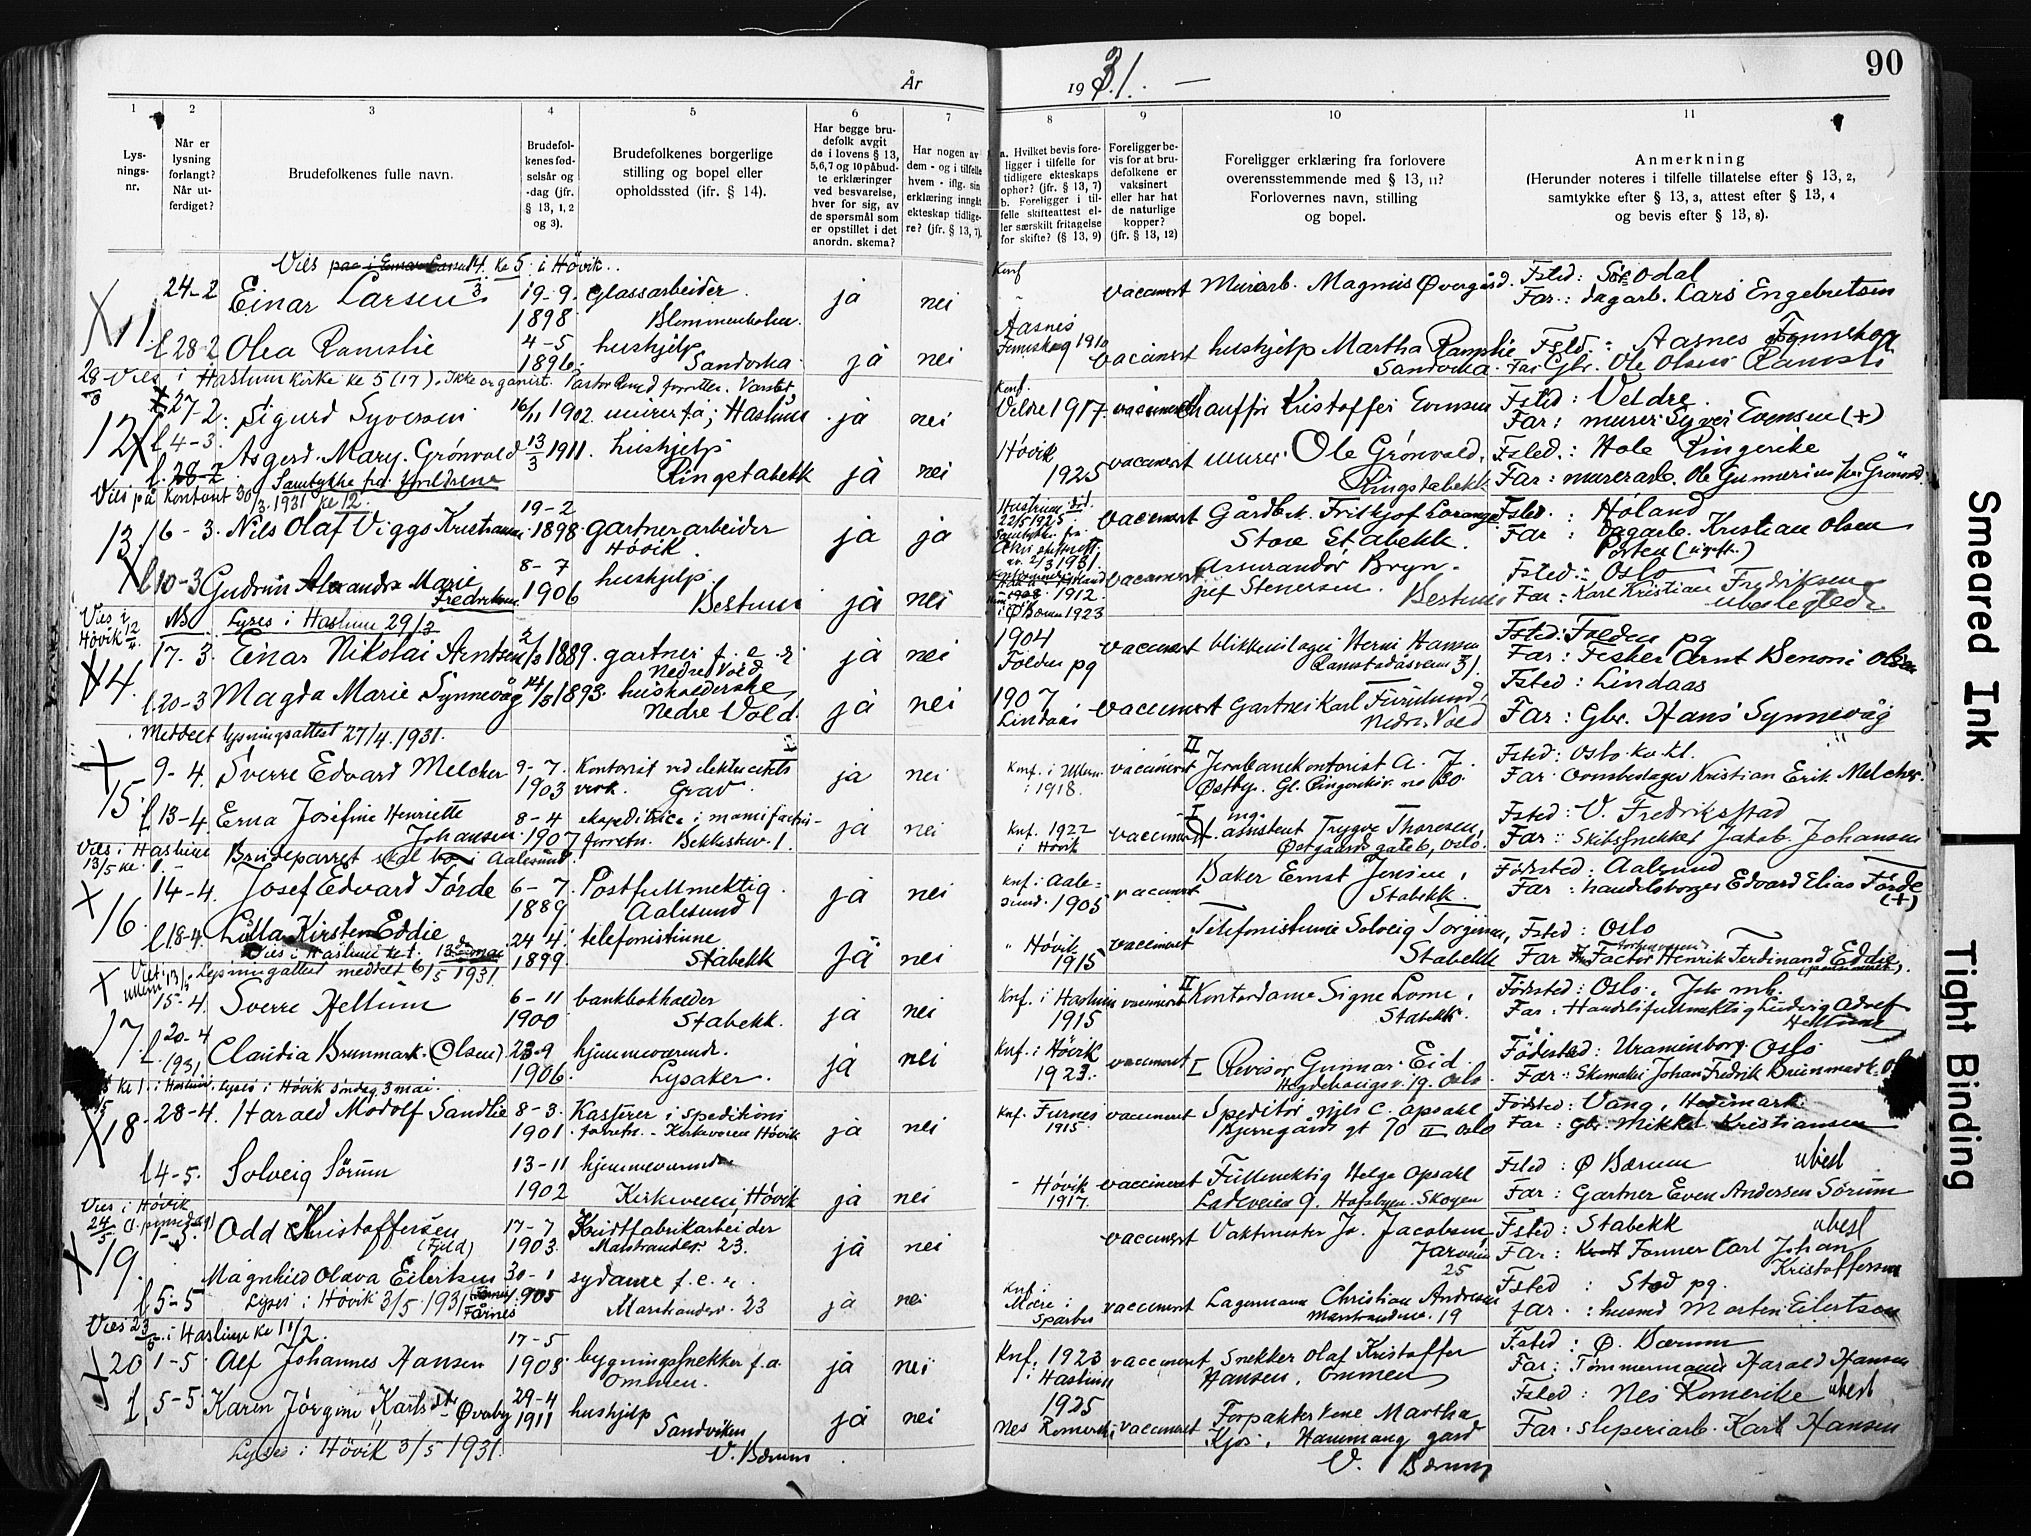 90
År
1931. —
1
2
3
4
5
6
7
8
9
10
11
Lys-
nings-
nr.
Når er
lysning
forlangt?
Når ut-
ferdiget?
Brudefolkenes fulle navn.
Brudefol-
kenes fød-
selsår og
-dag (jfr.
§ 13, 1, 2
og 3).
Brudefolkenes borgerlige
stilling og bopel eller
opholdssted (jfr. § 14).
Har begge bru-
defolk avgit
de i lovens § 13,
5,6,7 og 10 påbud-
te erklæringer
ved besvarelse,
hver for sig, av
de spørsmål som
er opstillet i det
anordn. skema?
Har nogen av
dem - og i tilfelle
hvem - iflg. sin
erklæring inngått
ekteskap tidlige-
re? (jfr. § 13, 7).
a. Hvilket bevis fore-
ligger i tilfelle for
tidligere ekteskaps
ophør? (jfr. § 13, 7)
b. Foreligger i til-
felle skifteattest el-
ler særskilt fritagelse
for skifte? (§ 13, 9)
Foreligger be-
vis for at bru-
defolkene er
vaksinert
eller har hat
de naturlige
kopper?
(jfr. § 13, 12)
Foreligger erklæring fra forlovere
overensstemmende med § 13, 11?
Forlovernes navn, stilling
og bopel.
Anmerkning
(Herunder noteres i tilfelle tillatelse efter § 13, 2,
samtykke efter § 13, 3, attest efter § 13, 4
og bevis efter § 13, 8).
11 24-2 Einar Larsen 19-9 1898 glassarbeider Blommenholm ja nei vaccinert Murarb. Magnus Øvergård. Fsted: Sör odal
Far: dagarb. Lars Engebretsen
l 28-2 Olea Ramslie 4-5 1896 hushjelp Sandvika ja nei Aasnes Finnskog 1910 vaccinert hushjelp Martha Ramslie Sandvika. Fsted: Aasnes Finnskog
Far Gbr. Ole Olsen
Vies i Haslum kirke kl 5 (17). Ikke organist.
12 27-2. Sigurd Syversen 16/11 1902 murer f.a; Haslum ja nei Konf. Veldre 1917 vaccinert chauffør Kristoffer Evensen Fsted: Veldre.
Far: murer Syver Evensen (+)
l 4-3. Asgerd Mary Grönvold 13/3 1911. hushjelp Ringstabekk ja nei Høvik 1925 vaccinert murer Ole Grönvold, Ringstabekk Fsted: Hole Ringerike
Samtykke fra foreldrene
Vies på kontoret 30/3 1931 kl 12.
13. 16-3. Nils Olaf Viggo Kristiansen 19-2 1898 gartnerarbeider Høvik ja ja vaccinert Gårdbr. Fritkjof Lorange Store Stabekk. Fsted: Høland
Far: Dagarb. Kristian Olsen
l 20-3 Gudrun Alexandra Marie Fredriksen 8-7 1906 hushjelp. Bestum ja nei vaccinert Assurandør Bryn. Bestum Fsted: Oslo
Far: Karl Kristian Fredriksen
NB Lyses i Haslum 29/3
14. 17-3. Einar Nikolai Arntsen 1889. gartner f.e.r Nedre Vold ja nei 1904 Folden pg vaccinert blikkenslager Henri Hansen Fsted: Folden pg
Far: Fisker Arnt Benoni Olsen
l 20-3 Magda Marie Synnevåg 1893. husholderske Nedre Vold. ja nei 1907 Lindaas vaccinert Gartner Karl Furulund, Nedre Vold Fsted: Lindaas
Far: Gbr. Hans Synnevåg
Meddelt lysningsattest 27/4. 1931.
15. 9-4. Sverre Edvard Melcher 9-7. 1903 Kontorist ved elektricitetsverk. Grav. ja nei Konf. i Ullern 1918. vaccinert II Jernbanekontorist A. J. Østby. Gl. Ringeriksv. no 30. Fsted: Oslo kv. kl.
Far: Kristian Erik Melcher.
l 13-4. Erna Josefine Henriette Johansen. 8-4 1907 ekspeditrice i manufacturforretn. Bekkeskov. 1. ja nei Knf. 1922 i Høvik vaccinert I assistent Trygve Thoresen, Østgaards gate 6, Oslo. Fsted: V. Fredriksstad
Far: Skibssnekker Jakob Johansen
Vies i Haslum 13/5 kl 1. Brudeparret skal bo i Aalesund.
16. 14-4. Josef Edvard Förde 6-7. 1889 Postfullmektig. Aalesund ja nei Knf. i Aalesund. 1905 vaccinert Baker Ernst Jensen, Stabekk. Födsted: Aalesund
Far: handelsborger Edvard Elias Förde (+)
l 18-4. Lilla Kirsten Eddie 24-4. 1899. telefonistinne Stabekk ja nei " Høvik 1915 vaccinert Telefonistinne Solveig Torgersen, Stabekk Fsted: Oslo
Far Factor Henrik Ferdinand Eddie,
Lysningsattest meddelt 6/5 1931.
17. 15-4. Sverre Hellum 6-11 1900 bankbokholder Stabekk. ja nei Knf. i Haslum 1915 vaccinert II Kontordame Signe Lome, Stabekk. Födsted: Oslo, Joh. mb.
Far: Handelsfullmektig Ludvig Adolf Hellum
l 20-4 1931. Claudia Brunmark (Olsen) 23-9 1906. hjemmeværende. Lysaker. ja nei Knf. i Høvik 1923. vaccinert I Revisor Gunnar Eid. Hegdehaugsv. 19. Oslo Födested: Uranienborg. Oslo
Far: Skomaker Johan Fredrik Brunmark
lyses i Høvik søndag 3 mai.
18. 28-4. Harald Modolf Sandlie 8-3. 1901. Kaserer i speditionsforretn. - Kirkeveien Høvik ja nei Knf. Furnes 1915. vaccineret Speditør Nils C. Opsahl Bjerregårds gt 70 II Oslo Födsted: Vang, Hedemark
Far: gbr. Mikkel Kristiansen
l 4-5. Solveig Sörum 13-11 1902 hjemmeværende Kirkeveien, Høvik ja nei - Høvik 1917. vaccineret Fullmektig Helge Opsahl Ladeveien 9. Hafsbyen. Skøyen Fsted: Ø Bærum ubesl
Far: Gartner Even Andersen Sörum
Vies i Høvik 24/5
19. 1-5. Odd Kristoffersen (Fjeld) 17-7 1903. Kridtfabrikarbeider Marstrandsv. 23. ja nei vaccinert Vaktmester Jo. Jacobsen, Jarveien 25 Fsted: Stabekk ubesl
Far: Carl Johan Kristoffersen
l 5-5 Magnhild Olava Eilertsen 30-1 1905 sydame f.e.r. Marstrandsv. 23 ja nei Knf. i Mære i Sparbu vaccinert Lagermann Christian Andresen Marstrandsv. 19 Fsted: Stod pg.
far: husmd Morten Eilertsen
Lyses i Høvik 3/5 1931
Vies 23/5 i Haslum kl 11 1/2.
20 1-5. Alf Johannes Hansen 17-5 1903. bygningssnekker f.a. Ommen. ja nei Knf. 1923 i Haslum vaccineret Snekker Olaf Kristoffer Hansen, Ommen Fsted: Ø. Bærum
Far: Tømmermann Harald Hansen
l. 5-5. Karen Jörgine Karlsdtr. Øvreby 29-4 1911 hushjelp Sandviken V. Bærum ja nei 1925 Nes Romerike vaccineret Forpakterkone Martha Kjos, Hammang gard V. Bærum Fsted: Nes Romerike ubesl
Far: sliperiarb. Karl Hansen
Lyses i Høvik 3/5 1931.
Smeared Ink
Tight Binding